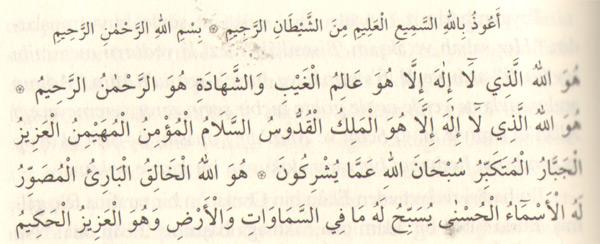 أَعُوذُ بِاللهِ السَّمِيعِ الْعَلِيمِ مِنَ الشَّيْطَانِ الرَّجِيمِ * بِسْمِ اللهِ الرَّحْمٰنِ الرَّحِيمِ
هُوَ اللهُ الَّذِي لَا إِلٰهَ إِلَّا هُوَ عَالِمُ الْغَيْبِ وَالشَّهَادَةِ هُوَ الرَّحْمٰنُ الرَّحِيمُ *
هُوَ اللهُ الَّذِي لَا إِلٰهَ إِلَّا هُوَ الْمَلِكُ الْقُدُّوسُ السَّلَامُ الْمُؤْمِنُ الْمُهَيْمِنُ الْعَزِيزُ
الْجَبَّارُ الْمُتَكَبِّرُ سُبْحَانَ اللهِ عَمَّا يُشْرِكُونَ * هُوَ اللهُ الْخَالِقُ الْبَارِئُ الْمُصَوِّرُ
لَهُ الْأَسْمَاءُ الْحُسْنٰى يُسَبِّحُ لَهُ مَا فِي السَّمَاوَاتِ وَالْأَرْضِ وَهُوَ الْعَزِيزُ الْحَكِيمُ